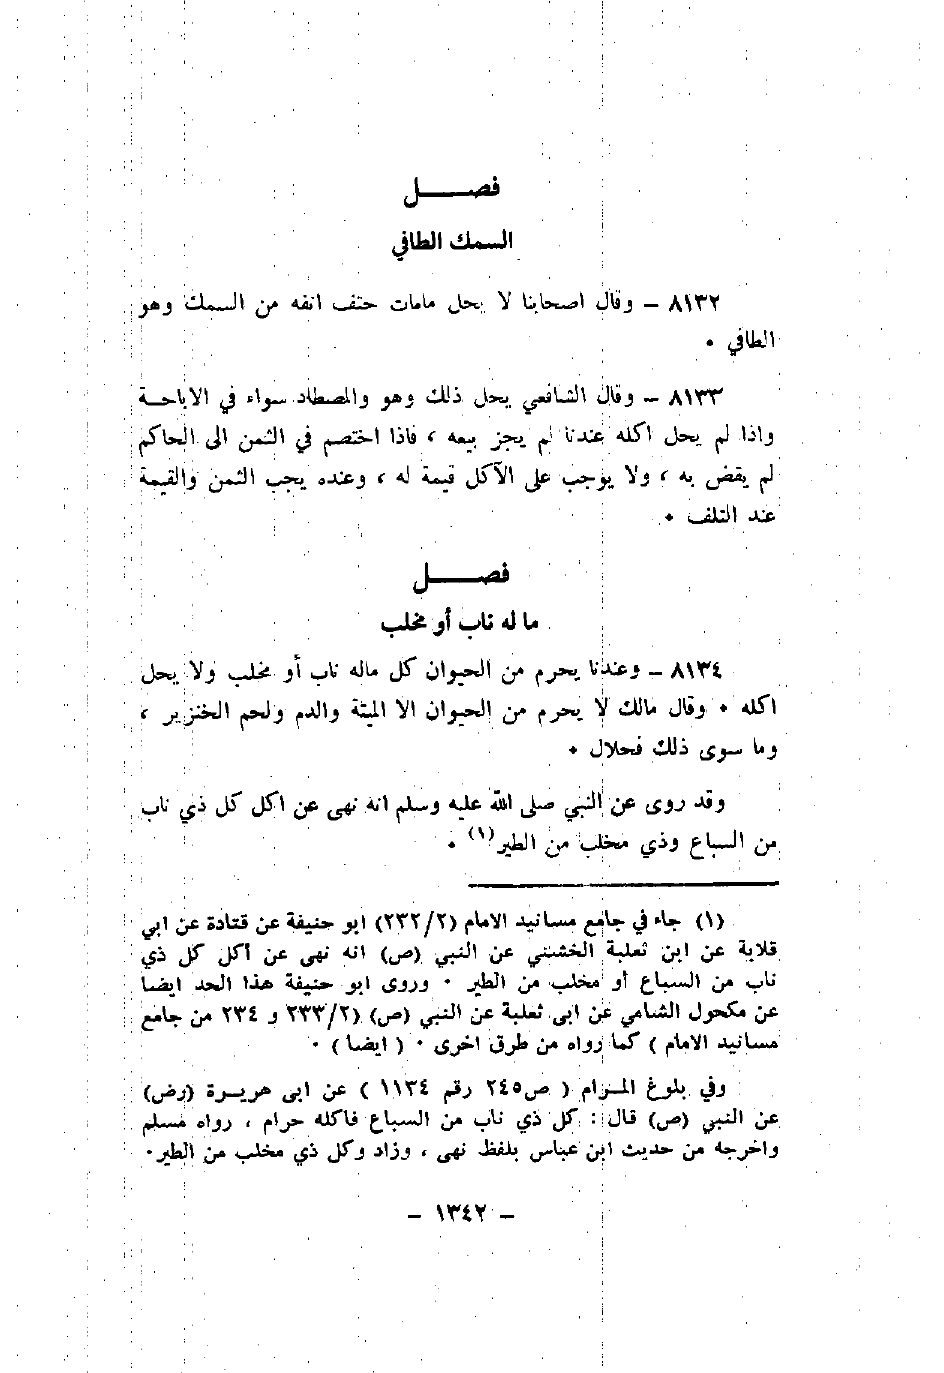 فصــــــل
السمك الطافي
٨١٣٢ – وقال اصحابنا لا يحل مامات حتف انفه من السمك وهو
الطافي ٠
٨١٣٣ – وقال الشافعي يحل ذلك وهو والمصطاد سواء في الاباحــة
واذا لم يحل اكله عندنا لم يجز بيعه ، فاذا اختصم في الثمن الى الحاكم
لم يقض به ، ولا يوجب على الآكل قيمة له ، وعنده يجب الثمن والقيمة
عند التلف ٠
فصــــــل
ما له ناب أو مخلب
٨١٣٤ – وعندنا يحرم من الحيوان كل ماله ناب أو مخلب ولا يحل
اكله ٠ وقال مالك لا يحرم من الحيوان الا الميتة والدم ولحم الخنزير ،
وما سوى ذلك فحلال ٠
وقد روى عن النبي صلى الله عليه وسلم انه نهى عن اكل كل ذي ناب
من السباع وذي مخلب من الطير(١) ٠
(١) جاء في جامع مسانيد الامام (٢٣٢/٢) ابو حنيفة عن قتادة عن ابي
قلابة عن ابن ثعلبة الخشني عن النبي (ص) انه نهى عن أكل كل ذي
ناب من السباع أو مخلب من الطير ٠ وروى ابو حنيفة هذا الحد ايضا
عن مكحول الشامي عن ابى ثعلبة عن النبي (ص) (٢٣٣/٢ و ٢٣٤ من جامع
مسانيد الامام ) كما رواه من طرق اخرى ٠ ( ايضا ) ٠
وفي بلوغ المـرام ( ص٢٤٥ رقم ١١٣٤ ) عن ابى هريـرة (رض)
عن النبي (ص) قال : كل ذي ناب من السباع فاكله حرام ، رواه مسلم
واخرجه من حديث ابن عباس بلفظ نهى ، وزاد وكل ذي مخلب من الطير٠
– ١٣٤٢ –